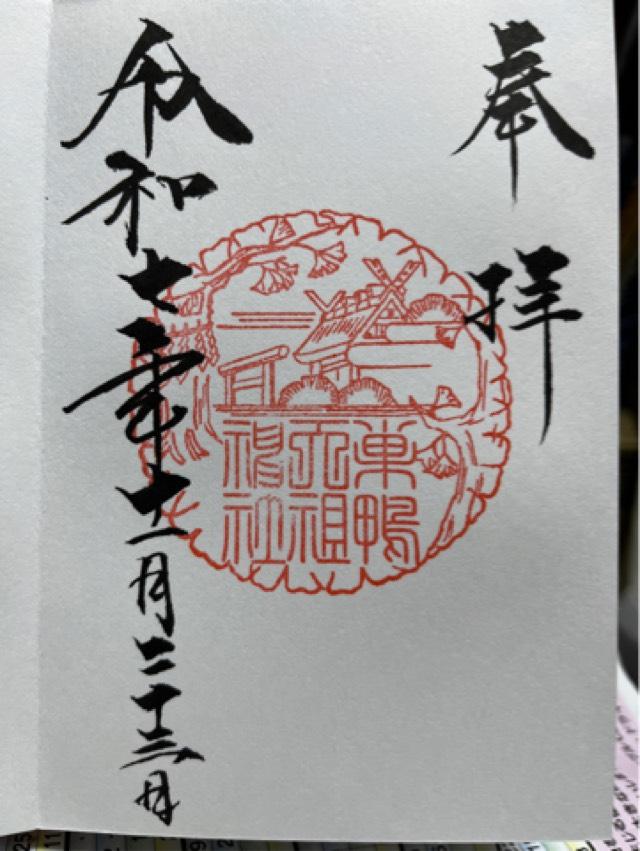 奉拝
巣鴨
天祖
神社
令和七年十一月二十三日